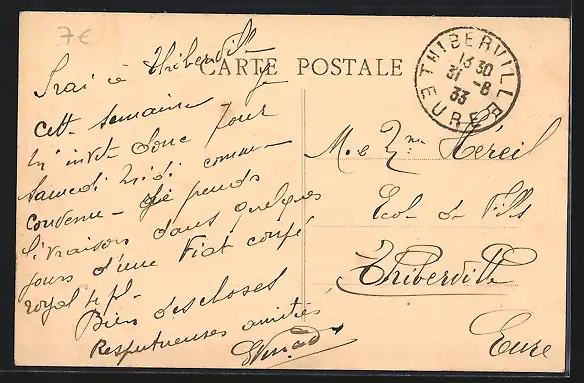 7€
CARTE POSTALE
THIBERVILLE
13 30
31 -8
33
EURE
Irai à Thiberville
cette semaine je
m'invite donc pour
Samedi midi comme
convenu - je prends
livraison dans quelques
jours d'une Fiat coupé
royal 4 pl-
Bien des choses
Respectueuses amitiés
M. & Mme Héreil
Ecole de Fills
Thiberville
Eure